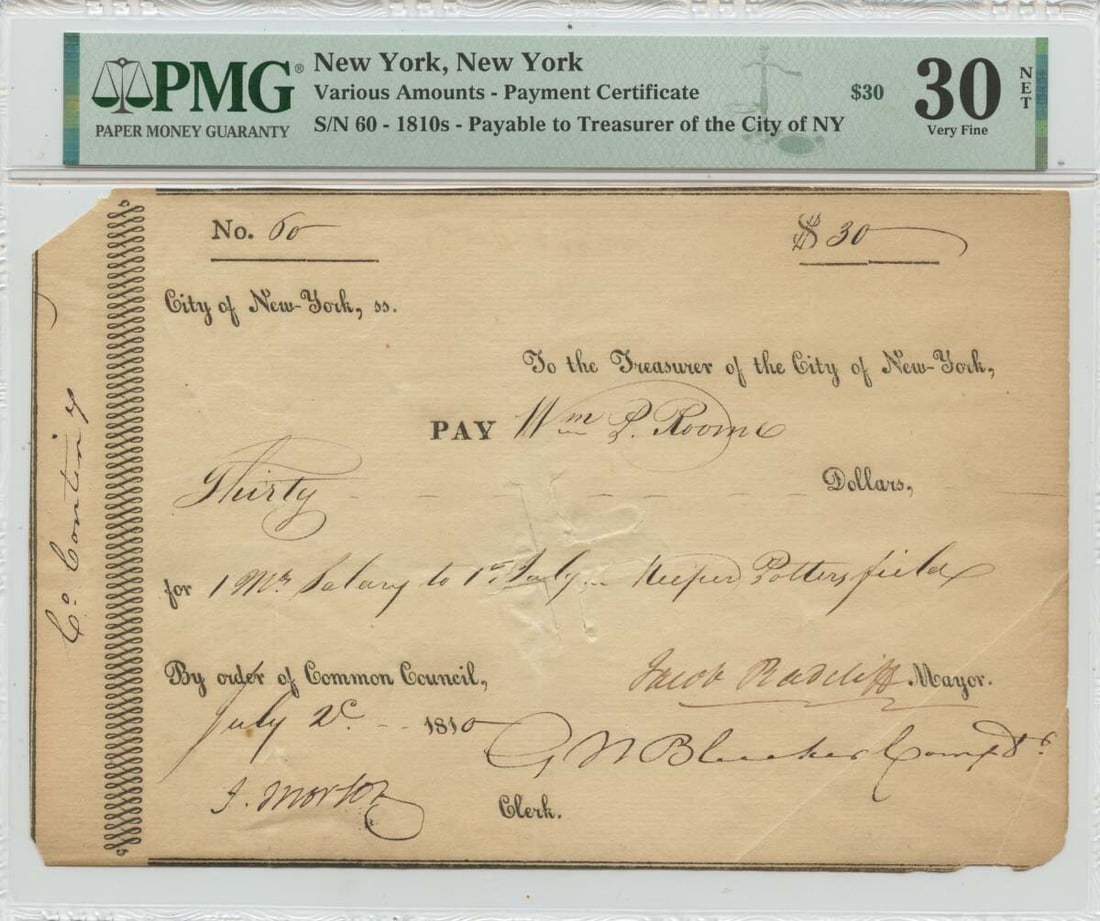 PMG®
PAPER MONEY GUARANTY
New York, New York
Various Amounts - Payment Certificate
S/N 60 - 1810s - Payable to Treasurer of the City of NY
$30
30
NET
Very Fine
No. 60
$ 30
City of New-York, ss.
To the Treasurer of the City of New-York,
PAY Wm P. Roome
Thirty Dollars,
for 1 Mr. Salary to 1st July Keeper Pottersfield
By order of Common Council,
Jacob Radcliff Mayor.
July 2d 1810
G N Bleecker Compt
J. Morton
Clerk.
Co. Conting